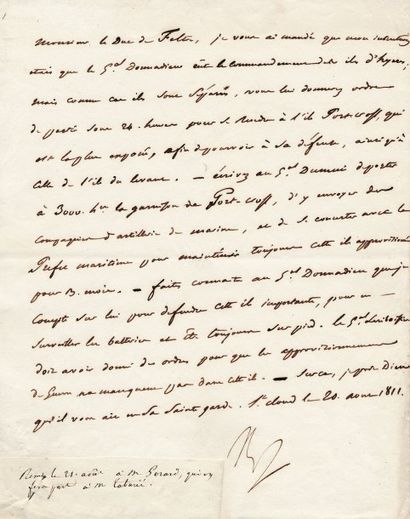 Monsieur le Duc de Feltre, je vous ai mandé que mon intention
était que le Gal Donnadieu eut le commandement des iles d'hyeres,
mais comme ces iles sont séparées, vous lui donnerez ordre
de partir sous 24. heures pour se rendre à l'ile Portcroff, qui
est la plus exposée, afin de pourvoir à sa défense, ainsi qu'à
celle de l'ile du levant. — écrivez au Gal Dumuy de porter
à 3000. hes la garnison de Portcroff, d'y envoyer des
compagnies d'artillerie de marine, et de se concerter avec le
Préfet maritime pour maintenir toujours cette ile approvisionnée
pour mois. — faites connaitre au Gal Donnadieu que je
compte sur lui pour défendre cette ile importante, pour en
surveiller les batteries et être toujours sur pied. le Gal
doit avoir donné des ordres pour que les approvisionnemens
de Guerre ne manquent pas dans cette ile. — Sur ce, je prie Dieu
qu'il vous ait en sa Sainte garde. St cloud le 20. aout 1811.
Remis le 21. août à Mr Gérard, qui en
fera part à M.